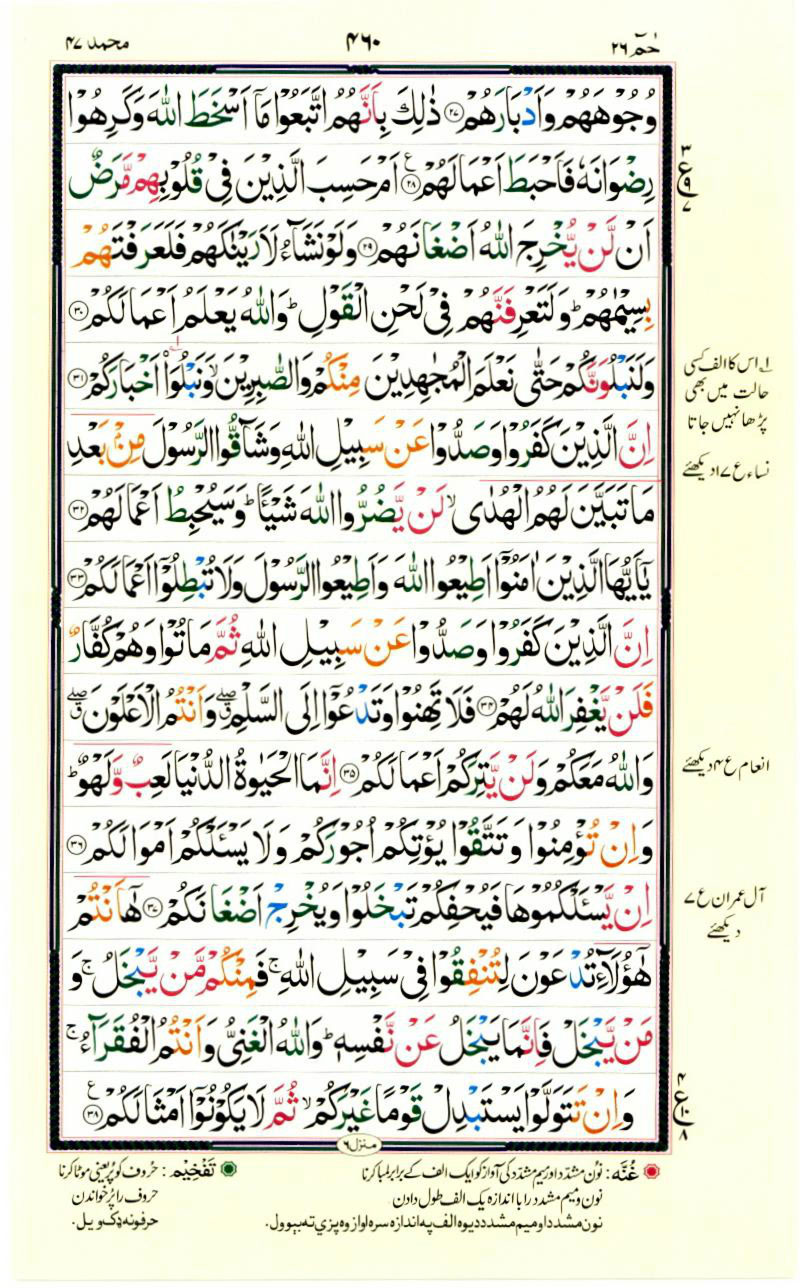 حٰمٓ ٢٦
٤٦٠
محمد ٤٧
وُجُوْهَهُمْ وَاَدْبَارَهُمْ ﴿۲۷﴾ ذٰلِكَ بِاَنَّهُمُ اتَّبَعُوْا مَاۤ اَسْخَطَ اللّٰهَ وَكَرِهُوْا
رِضْوَانَهٗ فَاَحْبَطَ اَعْمَالَهُمْ ﴿۲۸﴾ اَمْ حَسِبَ الَّذِيْنَ فِيْ قُلُوْبِهِمْ مَّرَضٌ
اَنْ لَّنْ يُّخْرِجَ اللّٰهُ اَضْغَانَهُمْ ﴿۲۹﴾ وَلَوْ نَشَآءُ لَاَرَيْنٰكَهُمْ فَلَعَرَفْتَهُمْ
بِسِيْمٰهُمْ ؕ وَلَتَعْرِفَنَّهُمْ فِيْ لَحْنِ الْقَوْلِ ؕ وَاللّٰهُ يَعْلَمُ اَعْمَالَكُمْ ﴿۳۰﴾
وَلَنَبْلُوَنَّكُمْ حَتّٰى نَعْلَمَ الْمُجٰهِدِيْنَ مِنْكُمْ وَالصّٰبِرِيْنَ ۙ وَنَبْلُوَا۟ اَخْبَارَكُمْ ﴿۳۱﴾
اِنَّ الَّذِيْنَ كَفَرُوْا وَصَدُّوْا عَنْ سَبِيْلِ اللّٰهِ وَشَآقُّوا الرَّسُوْلَ مِنْۢ بَعْدِ
مَا تَبَيَّنَ لَهُمُ الْهُدٰى ۙ لَنْ يَّضُرُّوا اللّٰهَ شَيْـًٔا ؕ وَسَيُحْبِطُ اَعْمَالَهُمْ ﴿۳۲﴾
يٰۤاَيُّهَا الَّذِيْنَ اٰمَنُوْۤا اَطِيْعُوا اللّٰهَ وَاَطِيْعُوا الرَّسُوْلَ وَلَا تُبْطِلُوْۤا اَعْمَالَكُمْ ﴿۳۳﴾
اِنَّ الَّذِيْنَ كَفَرُوْا وَصَدُّوْا عَنْ سَبِيْلِ اللّٰهِ ثُمَّ مَاتُوْا وَهُمْ كُفَّارٌ
فَلَنْ يَّغْفِرَ اللّٰهُ لَهُمْ ﴿۳۴﴾ فَلَا تَهِنُوْا وَتَدْعُوْۤا اِلَى السَّلْمِ ۖ وَاَنْتُمُ الْاَعْلَوْنَ ۖ
وَاللّٰهُ مَعَكُمْ وَلَنْ يَّتِرَكُمْ اَعْمَالَكُمْ ﴿۳۵﴾ اِنَّمَا الْحَيٰوةُ الدُّنْيَا لَعِبٌ وَّلَهْوٌ ؕ
وَاِنْ تُؤْمِنُوْا وَتَتَّقُوْا يُؤْتِكُمْ اُجُوْرَكُمْ وَلَا يَسْـَٔلْكُمْ اَمْوَالَكُمْ ﴿۳۶﴾
اِنْ يَّسْـَٔلْكُمُوْهَا فَيُحْفِكُمْ تَبْخَلُوْا وَيُخْرِجْ اَضْغَانَكُمْ ﴿۳۷﴾ هٰۤاَنْتُمْ
هٰۤؤُلَآءِ تُدْعَوْنَ لِتُنْفِقُوْا فِيْ سَبِيْلِ اللّٰهِ ۚ فَمِنْكُمْ مَّنْ يَّبْخَلُ ۚ وَ
مَنْ يَّبْخَلْ فَاِنَّمَا يَبْخَلُ عَنْ نَّفْسِهٖ ؕ وَاللّٰهُ الْغَنِيُّ وَاَنْتُمُ الْفُقَرَآءُ ۚ
وَاِنْ تَتَوَلَّوْا يَسْتَبْدِلْ قَوْمًا غَيْرَكُمْ ۙ ثُمَّ لَا يَكُوْنُوْۤا اَمْثَالَكُمْ ﴿۳۸﴾
٣
ع ٩
٧
١ اس کا الف کسی
حالت میں بھی
پڑھا نہیں جاتا
نساء ع ١٧ دیکھئے
انعام ع ٤ دیکھئے
آل عمران ع ٧
دیکھئے
٤
ع ١٠
٨
منزل ٦
غُنَّه: نون مشدد اور میم مشدد کی آواز کو ایک الف کے برابر لمبا کرنا
نون و میم مشدد را با اندازه یک الف طول دادن
نون مشدد او میم مشدد د یوه الف په اندازه سره اواز وه پزې ته بېوول.
تَفْخِيْم: حروف کو پُر یعنی موٹا کرنا
حروف را پُر خواندن
حرفونه ډک ویل.